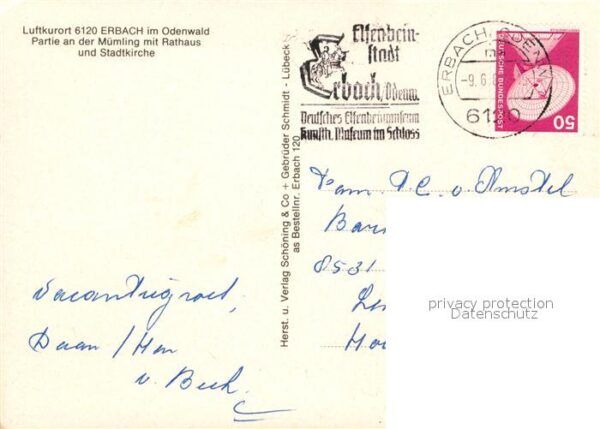 Luftkurort 6120 ERBACH im Odenwald
Partie an der Mümling mit Rathaus
und Stadtkirche
Elfenbein-
stadt
Erbach/Odenw.
Deutsches Elfenbeinmuseum
Kunsth. Museum im Schloss
ERBACH, ODENW
-9.6.
6120
DEUTSCHE BUNDESPOST
50
Herst. u. Verlag Schöning & Co + Gebrüder Schmidt - Lübeck
as Bestellnr. Erbach 120
Fam. P.C. v. Amstel
8531
privacy protection
Datenschutz
Vacantiegroet,
Daan / Han
v. Beek.